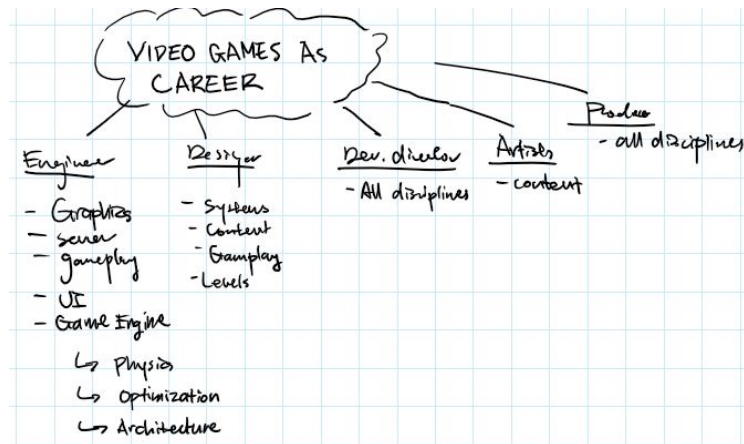 VIDEO GAMES AS
CAREER
Engineer
- Graphics
- server
- gameplay
- UI
- Game Engine
↳ Physics
↳ Optimization
↳ Architecture
Designer
- Systems
- Content
- Gamplay
- Levels
Dev. director
- All disciplines
Artists
- content
Producer
- all disciplines